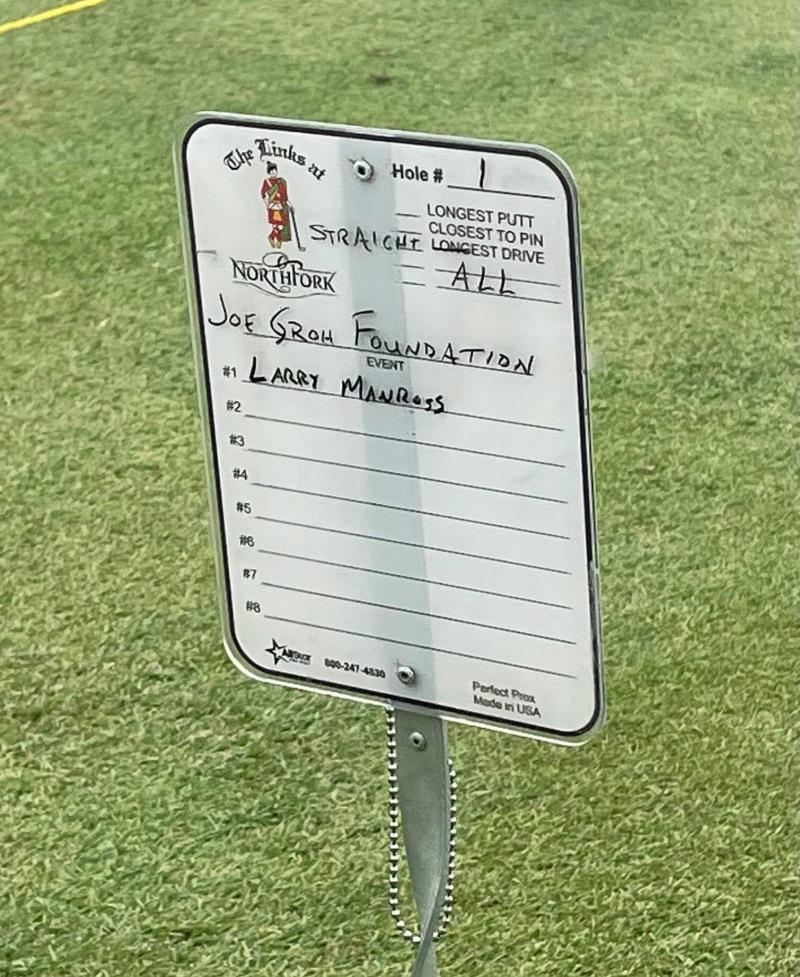 The Links at
NORTHFORK
Hole # 1
LONGEST PUTT
CLOSEST TO PIN
STRAIGHT LONGEST DRIVE
ALL
JOE GROH FOUNDATION
EVENT
#1 LARRY MANROSS
#2
#3
#4
#5
#6
#7
#8
AllStar
800-247-4830
Perfect Prox
Made in USA